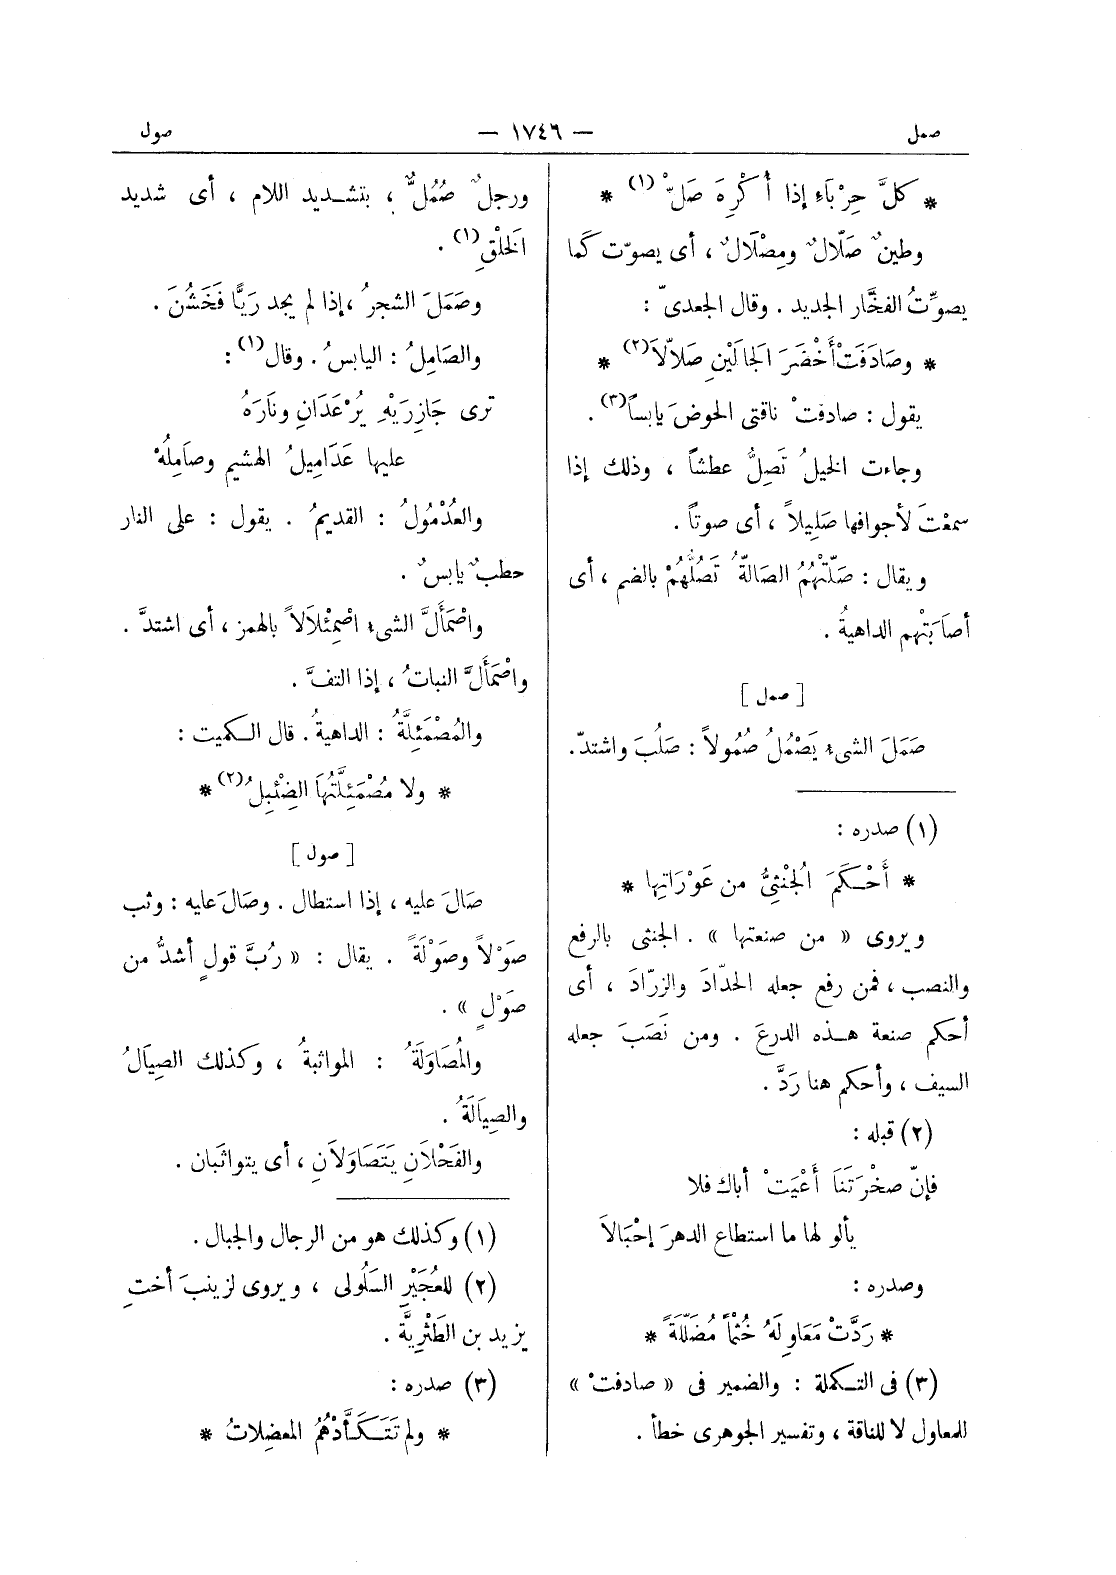 صمل
— ١٧٤٦ —
صول
* كلَّ حِرْبَاءٍ إذا أُكْرِهَ صَلّْ (١) *
وطينٌ صَلّالٌ ومِصْلَالٌ ، أى يصوّت كَما
يصوِّتُ الفخَّار الجديد . وقال الجعدىّ :
* وصَادَفَتْ أَخْضَرَ الجَالَيْنِ صَلاّلاَ (٢) *
يقول : صادفتْ ناقتى الحوضَ يابساً (٣) .
وجاءت الخيلُ تَصِلُّ عطشاً ، وذلك إذا
سمعْتَ لأجوافها صَلِيلاً ، أى صوتاً .
ويقال : صَلّتْهُمُ الصَالّةُ تَصُلُّهُمْ بالضم ، أى
أصَابَتْهم الداهيةُ .
[ صمل ]
صَمَلَ الشىء يَصْمُلُ صُمُولاً : صَلُبَ واشتدّ.
(١) صدره :
* أَحْكَمَ الجُنْثِىُّ من عَوْرَاتِها *
ويروى « من صنعتها » . الجنثى بالرفع
والنصب ، فمن رفع جعله الحدّادَ والزرّادَ ، أى
أحكم صنعة هذه الدرعَ . ومن نَصَبَ جعله
السيف ، وأحكم هنا رَدَّ .
(٢) قبله :
فإنّ صخْرَتَنَا أَعْيَتْ أباك فلا
يألو لها ما استطاع الدهرَ إحْبَالاَ
وصدره :
* رَدَّتْ مَعَاوِلَهُ خُثْماً مُضَلّلةً *
(٣) فى التكملة : والضمير فى « صادفتْ »
للمعاول لا للناقة ، وتفسير الجوهرى خطأ .
ورجلٌ صُمُلٌّ ، بتشديد اللام ، أى شديد
الخَلْقِ (١) .
وصَمَلَ الشجرُ ، إذا لم يجد رَيًّا فَخَشُنَ .
والصَامِلُ : اليابسُ . وقال (١) :
ترى جَازِرَيْهِ يُرْعَدَانِ ونَارَهُ
عليها عَدَامِيلُ الهشيم وصَامِلُهْ
والعُدْمُولُ : القديمُ . يقول : على النار
حطبٌ يابسٌ .
واصْمَأَلَّ الشىء اصْمِئْلاَلاً بالهمز ، أى اشتدَّ .
واصْمَأَلَّ النباتُ ، إذا التفَّ .
والمُصْمَئِلَّةُ : الداهيةُ . قال الكميت :
* ولا مُصْمَئِلَّتُهَا الضِئْبِلُ (٢) *
[ صول ]
صَالَ عليه ، إذا استطال . وصَالَ عليه : وثب
صَوْلاً وصَوْلَةً . يقال : « رُبَّ قولٍ أشدُّ من
صَوْلٍ » .
والمُصَاوَلَةُ : المواثبةُ ، وكذلك الصِيَالُ
والصِيَالَةُ .
والفَحْلَانِ يَتَصَاوَلَانِ ، أى يتواثبان .
(١) وكذلك هو من الرجال والجبال .
(٢) للعُجَيْرِ السَلُولى ، ويروى لزينبَ أختِ
يزيد بن الطَثْرِيَّة .
(٣) صدره :
* ولم تَتَكَأَّدْهُمُ المعضِلاتُ *